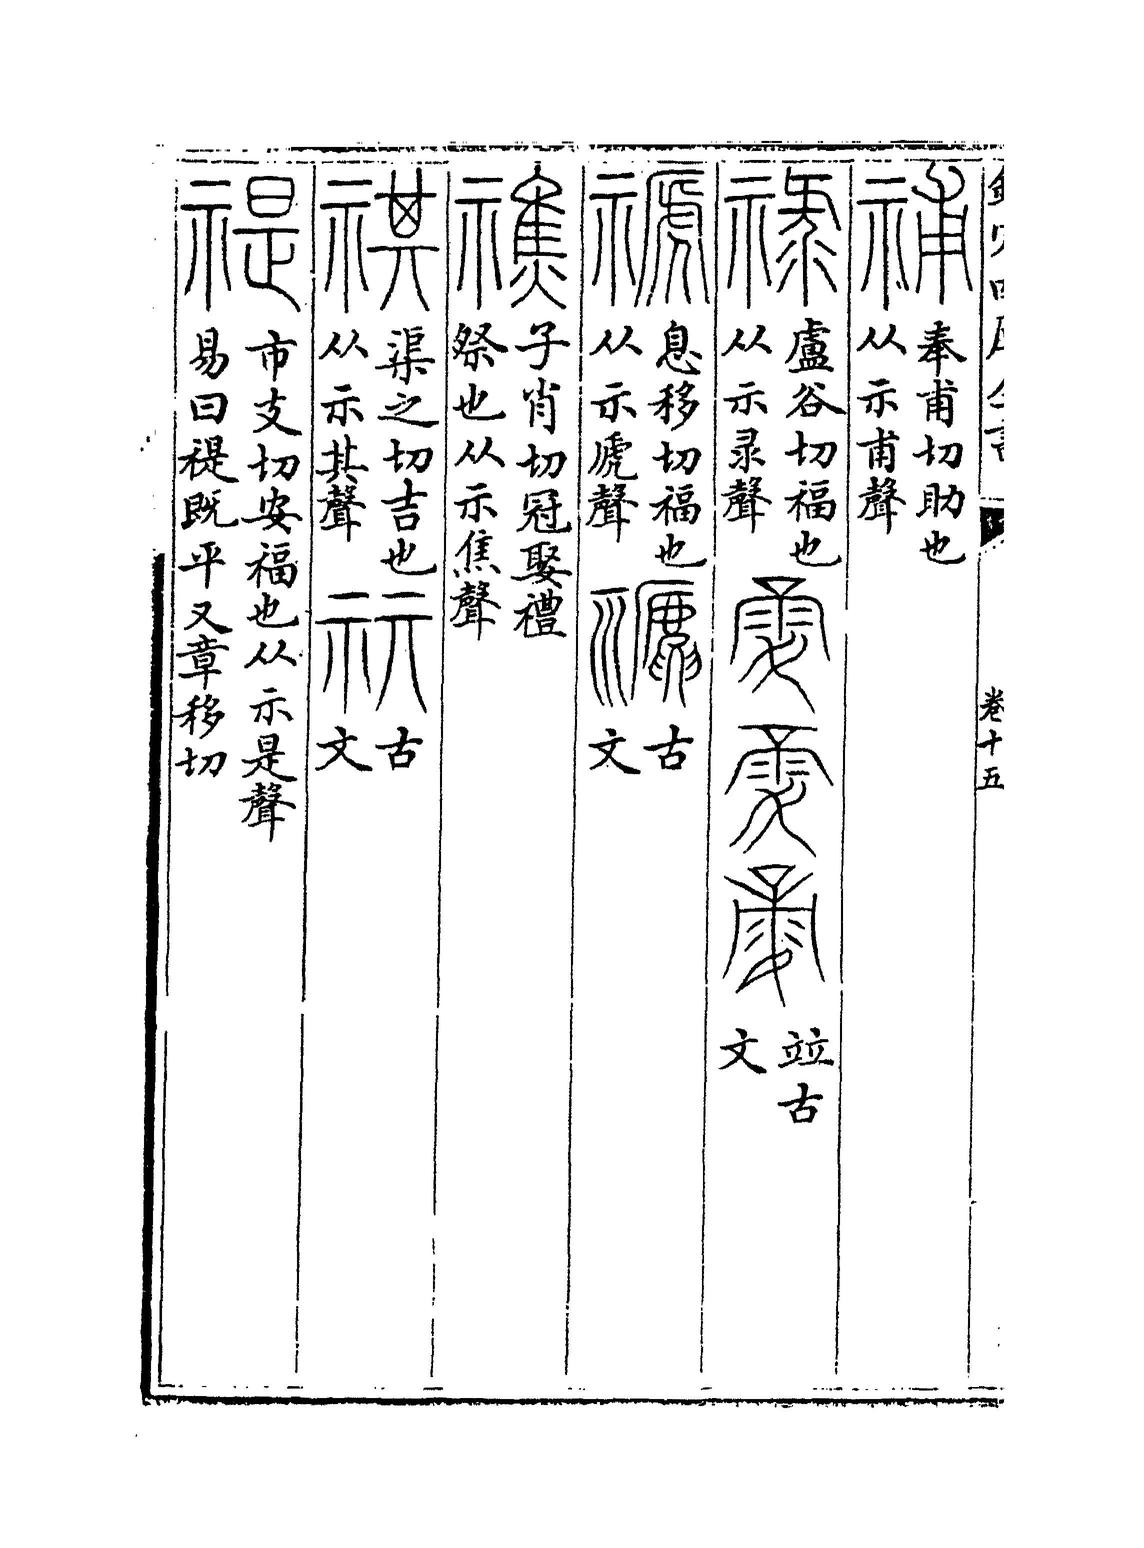 欽定四庫全書
卷十五
奉甫切助也
从示甫聲
祿
盧谷切福也
从示录聲
竝古
文
禠
息移切福也
从示虒聲
古
文
子肖切冠娶禮
祭也从示焦聲
祺
渠之切吉也
从示其聲
古
文
禔
市支切安福也从示是聲
易曰禔既平又章移切